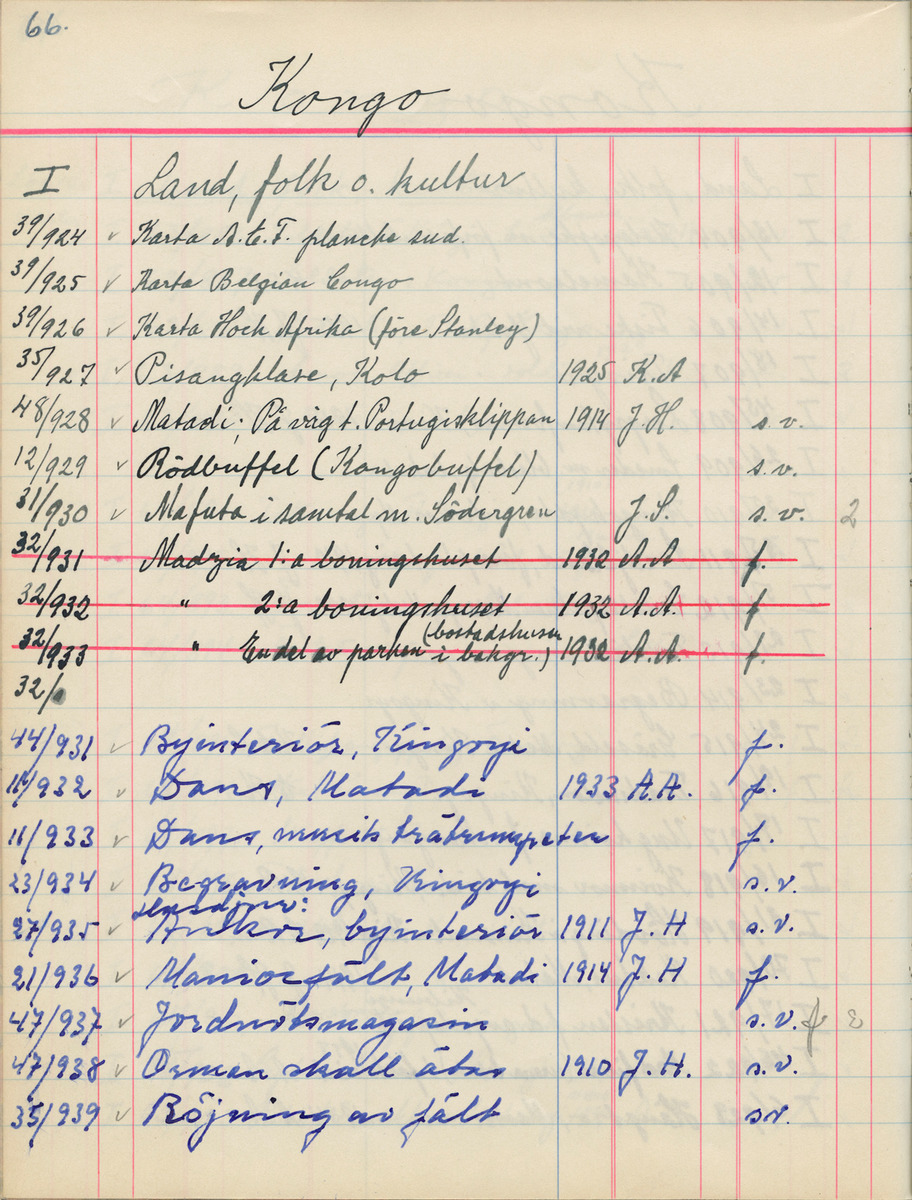 66.
Kongo
I Land, folk o. kultur
39/924 ✓ Karta A.E.F. planche sud.
39/925 ✓ Karta Belgian Congo
39/926 ✓ Karta Hoch Afrika (före Stanley)
35/927 ✓ Pisangklase, Kolo 1925 K.A
48/928 ✓ Matadi; På väg t. Portugisklippan 1914 J.H. s.v.
12/929 ✓ Rödbuffel (Kongobuffel) s.v.
31/930 ✓ Mafuta i samtal m. Södergren J.S. s.v. 2
32/931 Madzia 1:a boningshuset 1932 A.A f.
32/932 " 2:a boningshuset 1932 A.A. f
32/933 " En del av parken (bostadshusen i bakgr.) 1932 A.A. f.
32/
44/931 ✓ Byinteriör, Kingoyi f.
11/932 ✓ Dans, Matadi 1933 A.A. f.
11/933 ✓ Dans, musik trätrumpeter f.
23/934 ✓ Begravning, Kingoyi s.v.
27/935 ✓ byinteriör 1911 J.H s.v.
21/936 ✓ Maniocfält, Matadi 1914 J.H f.
47/937 ✓ Jordnötsmagasin s.v. f 3
47/938 ✓ Ormen skall ätas 1910 J.H. s.v.
35/939 ✓ Röjning av fält s.v.